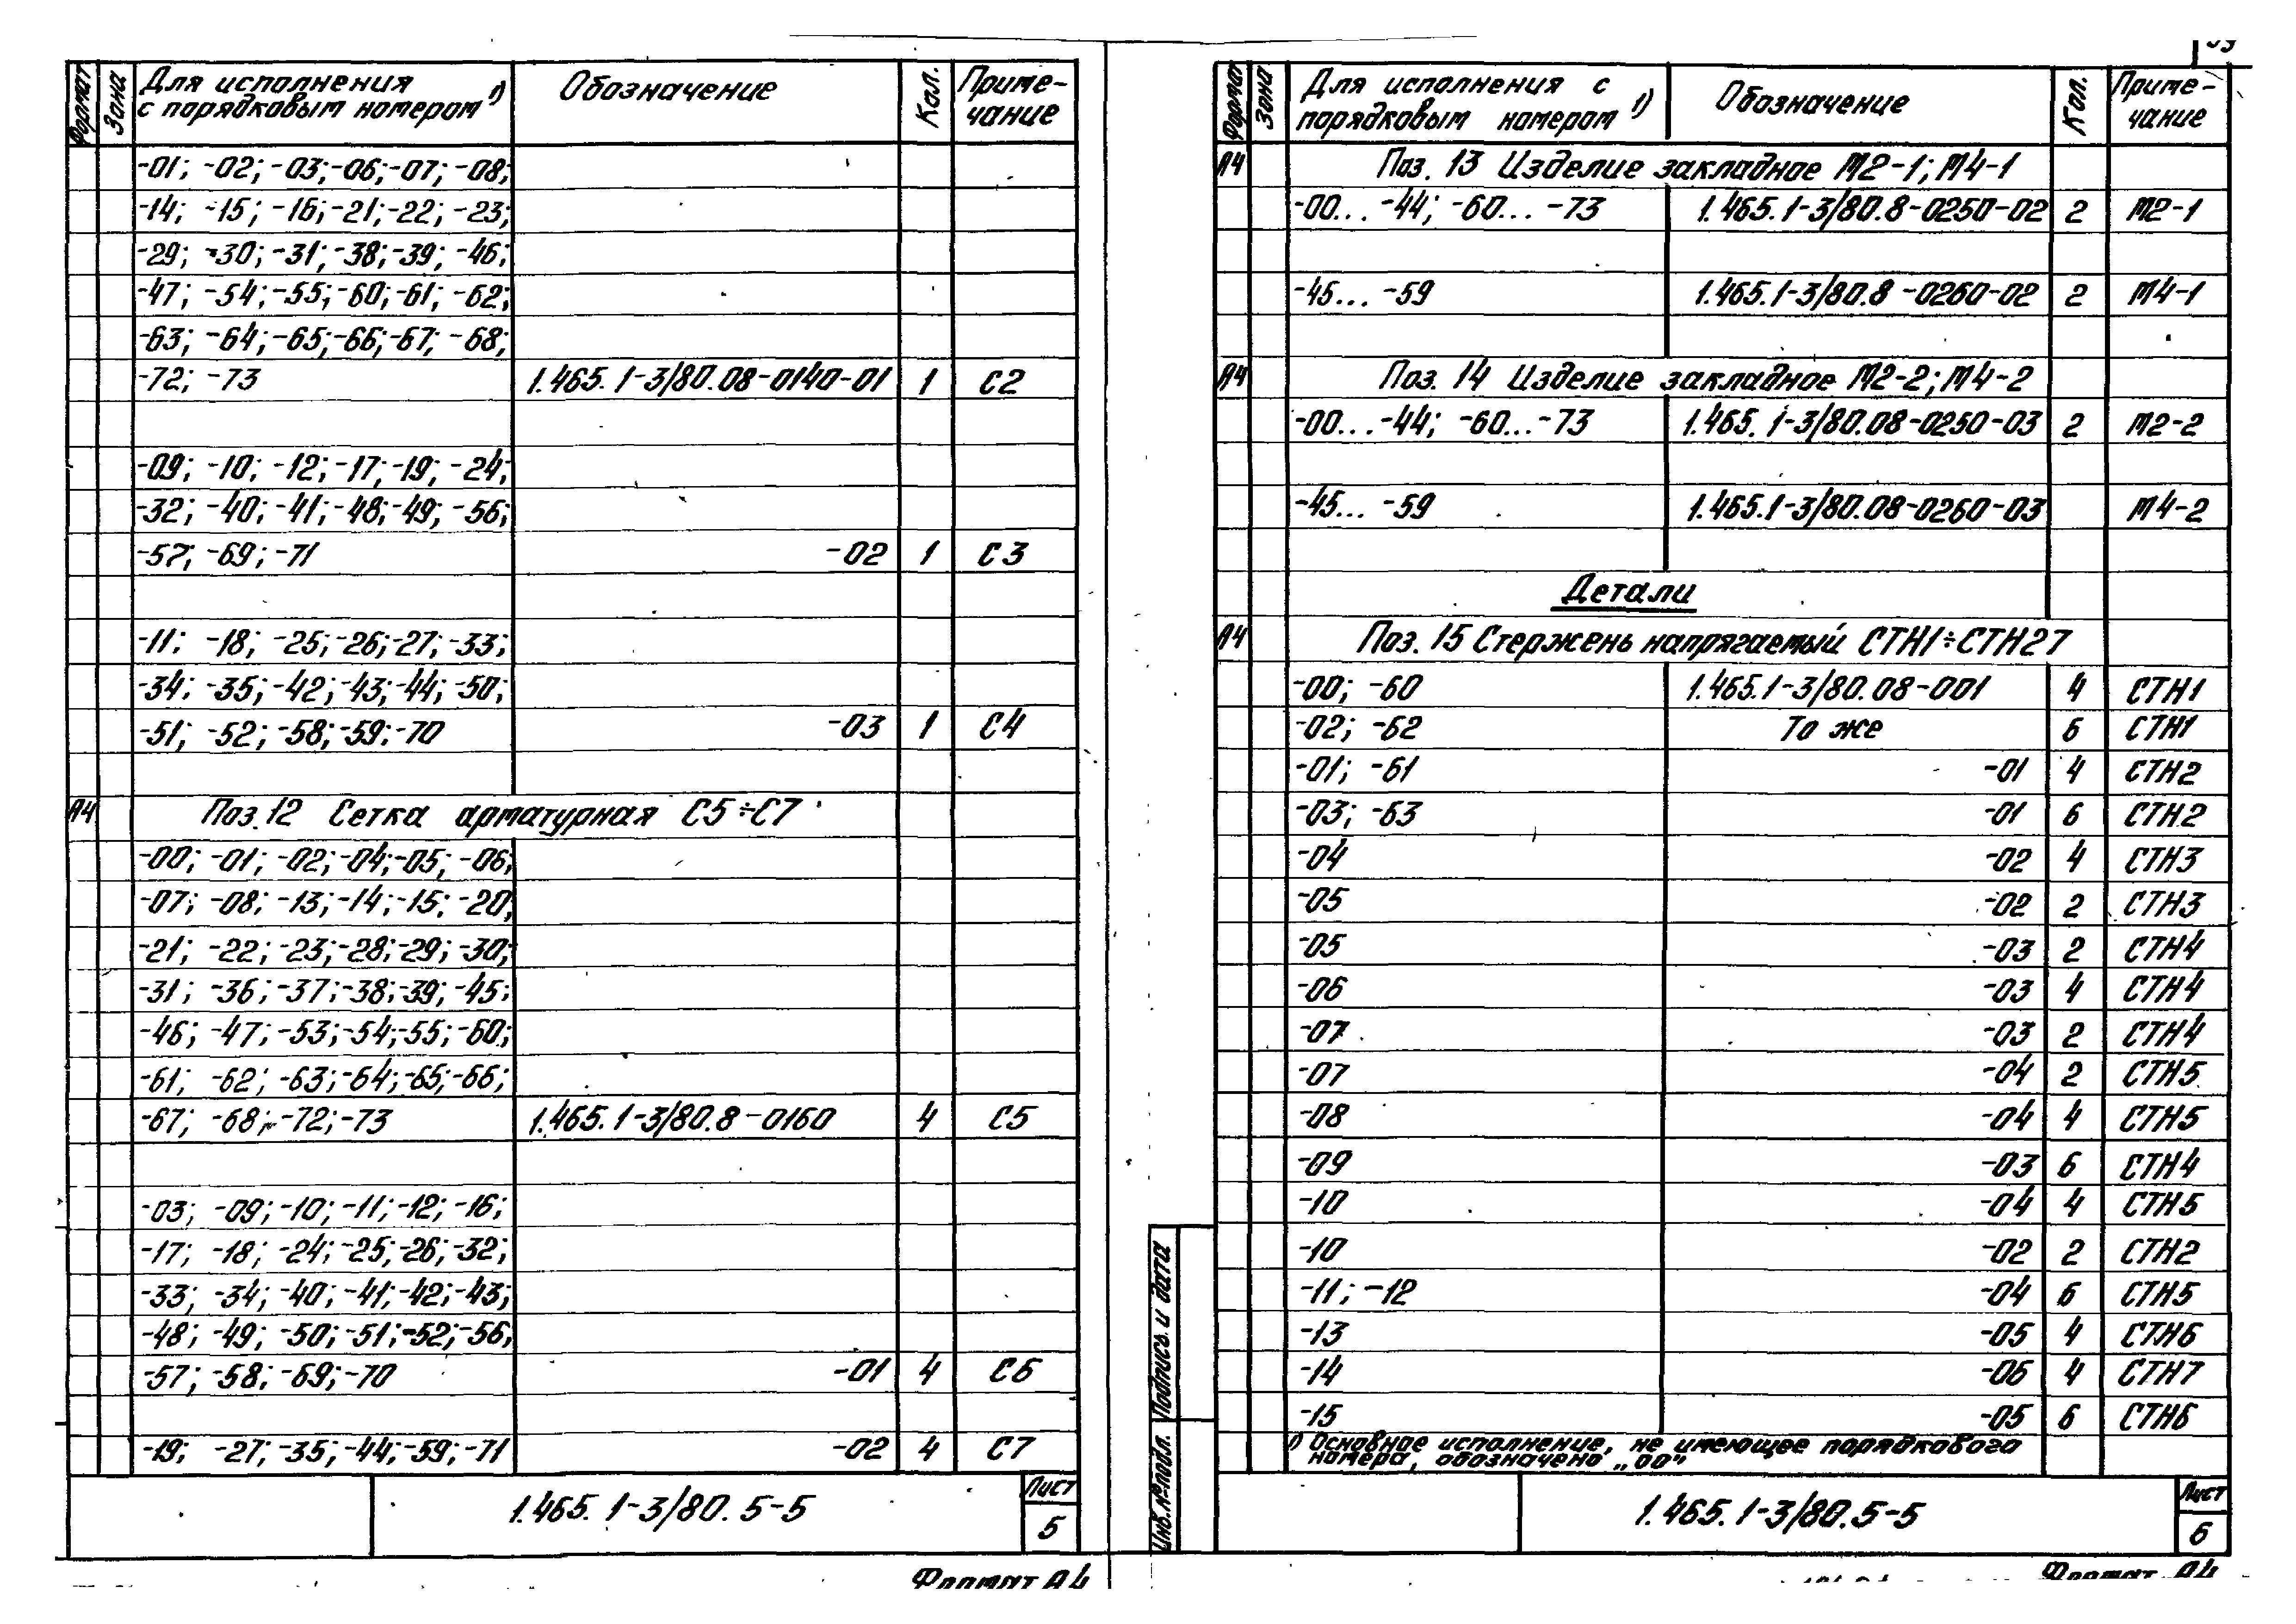 Формат
Зона
Для исполнения
с порядковым номером 1)
Обозначение
Кол.
Приме-
чание
-01; -02; -03; -06; -07; -08;
-14; -15; -16; -21; -22; -23;
-29; -30; -31; -38; -39; -46;
-47; -54; -55; -60; -61; -62;
-63; -64; -65; -66; -67; -68;
-72; -73 1.465.1-3/80.08-0140-01 1 С2
-09; -10; -12; -17; -19; -24;
-32; -40; -41; -48; -49; -56;
-57; -69; -71 -02 1 С3
-11; -18; -25; -26; -27; -33;
-34; -35; -42; -43; -44; -50;
-51; -52; -58; -59; -70 -03 1 С4
А4 Поз.12 Сетка арматурная С5÷С7
-00; -01; -02; -04; -05; -06;
-07; -08; -13; -14; -15; -20;
-21; -22; -23; -28; -29; -30;
-31; -36; -37; -38; -39; -45;
-46; -47; -53; -54; -55; -60;
-61; -62; -63; -64; -65; -66;
-67; -68; -72; -73 1.465.1-3/80.8-0160 4 С5
-03; -09; -10; -11; -12; -16;
-17; -18; -24; -25; -26; -32;
-33; -34; -40; -41; -42; -43;
-48; -49; -50; -51; -52; -56;
-57; -58; -69; -70 -01 4 С6
-19; -27; -35; -44; -59; -71 -02 4 С7
1.465.1-3/80.5-5
Лист
5
Формат А4
Формат
Зона
Для исполнения с
порядковым номером 1)
Обозначение
Кол.
Приме-
чание
А4 Поз. 13 Изделие закладное М2-1; М4-1
-00... -44; -60... -73 1.465.1-3/80.8-0250-02 2 М2-1
-45... -59 1.465.1-3/80.8-0260-02 2 М4-1
А4 Поз. 14 Изделие закладное М2-2; М4-2
-00... -44; -60... -73 1.465.1-3/80.08-0250-03 2 М2-2
-45... -59 1.465.1-3/80.08-0260-03 М4-2
Детали
А4 Поз. 15 Стержень напрягаемый СТН1÷СТН27
-00; -60 1.465.1-3/80.08-001 4 СТН1
-02; -62 То же 6 СТН1
-01; -61 -01 4 СТН2
-03; -63 -01 6 СТН2
-04 -02 4 СТН3
-05 -02 2 СТН3
-05 -03 2 СТН4
-06 -03 4 СТН4
-07 -03 2 СТН4
-07 -04 2 СТН5
-08 -04 4 СТН5
-09 -03 6 СТН4
-10 -04 4 СТН5
-10 -02 2 СТН2
-11; -12 -04 6 СТН5
-13 -05 4 СТН6
-14 -06 4 СТН7
-15 -05 6 СТН6
1) Основное исполнение, не имеющее порядкового
номера, обозначено „00"
Инв.№ подл. Подпись и дата
1.465.1-3/80.5-5
Лист
6
Формат А4